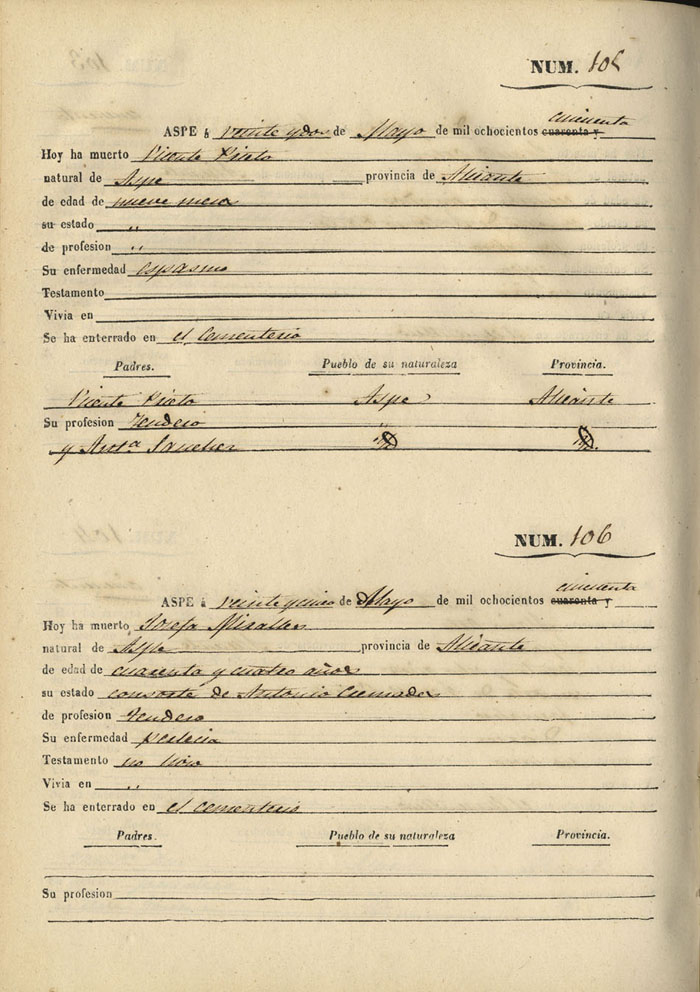 NUM. 105
cincuenta
ASPE á veinte y dos de Mayo de mil ochocientos cuarenta y
Hoy ha muerto Vicente Prieto
natural de Aspe provincia de Alicante
de edad de nueve meses
su estado „
de profesion „
Su enfermedad espasmo
Testamento
Vivia en
Se ha enterrado en el Cementerio
Padres. Pueblo de su naturaleza Provincia.
Vicente Prieto Aspe Alicante
Su profesion Tendero
y Antª Sanchez
NUM. 106
cincuenta
ASPE á veinte y cinco de Mayo de mil ochocientos cuarenta y
Hoy ha muerto Josefa Miralles
natural de Aspe provincia de Alicante
de edad de cuarenta y cuatro años
su estado consorte de Antonio
de profesion Tendero
Su enfermedad
Testamento no hizo
Vivia en „
Se ha enterrado en el cementerio
Padres. Pueblo de su naturaleza Provincia.
Su profesion